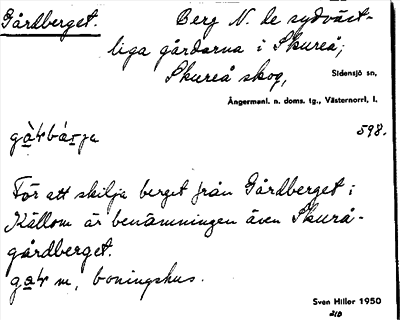 Gårdberget. Berg N. de sydväst-
liga gårdarna i Skureå;
Skureå skog, Sidensjö sn,
Ångermanl. n. doms. tg., Västernorrl. l.
598.
För att skilja berget från Gårdberget i
Källom är benämningen även Skureå-
gårdberget.
m, boningshus.
Sven Hiller 1950
210